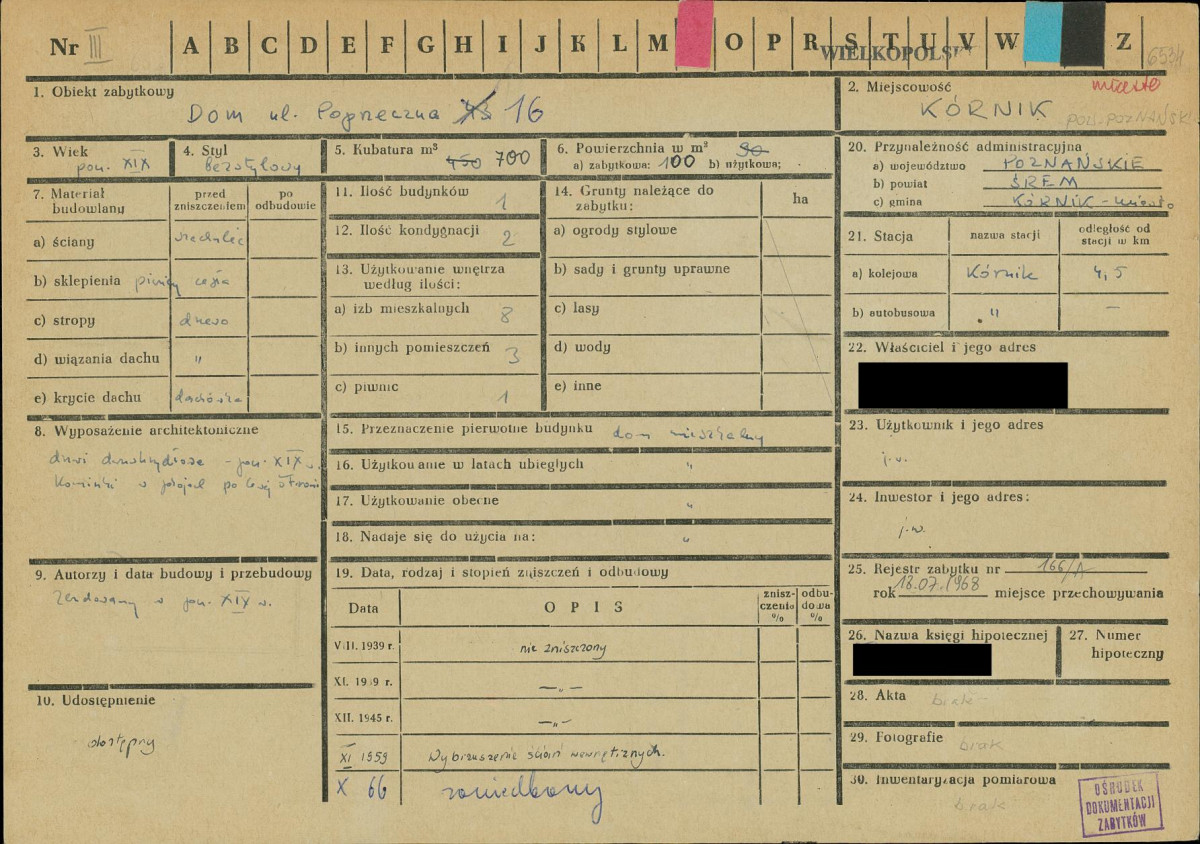 Nr III A B C D E F G H I J K L M O P R S T U V W Z
WIELKOPOLSK
1. Obiekt zabytkowy
Dom ul. Poprzeczna 16
2. Miejscowość miasto
KÓRNIK
POW. POZNAŃSKI
3. Wiek
poł. XIX
4. Styl
bezstylowy
5. Kubatura m³
450 700
6. Powierzchnia w m² 90
a) zabytkowa: 100 b) użytkowa;
7. Materiał budowlany
przed zniszczeniem
po odbudowie
a) ściany
b) sklepienia piwnicy cegła
c) stropy drewo
d) wiązania dachu "
e) krycie dachu dachówka
8. Wyposażenie architektoniczne
drzwi dwuskrzydłowe - poł. XIX w.
Kominki w po lewej stronie
9. Autorzy i data budowy i przebudowy
w poł. XIX w.
10. Udostępnienie
dostępny
11. Ilość budynków 1
12. Ilość kondygnacji 2
13. Użytkowanie wnętrza
według ilości:
a) izb mieszkalnych 8
b) innych pomieszczeń 3
c) piwnic 1
14. Grunty należące do
zabytku:
ha
a) ogrody stylowe
b) sady i grunty uprawne
c) lasy
d) wody
e) inne
15. Przeznaczenie pierwotne budynku dom mieszkalny
16. Użytkowanie w latach ubiegłych "
17. Użytkowanie obecne "
18. Nadaje się do użycia na: "
19. Data, rodzaj i stopień zniszczeń i odbudowy
Data
OPIS
znisz-
czenia
%
odbu-
dowa
%
VIII. 1939 r. nie zniszczony
XI. 1939 r. —„—
XII. 1945 r. —„—
XI 1959 Wybrzuszenie ścian wewnętrznych.
X 66 zaniedbany
20. Przynależność administracyjna
a) województwo POZNAŃSKIE
b) powiat ŚREM
c) gmina KÓRNIK - miasto
21. Stacja
nazwa stacji
odległość od
stacji w km
a) kolejowa Kórnik 4,5
b) autobusowa " —
22. Właściciel i jego adres
23. Użytkownik i jego adres
j.w.
24. Inwestor i jego adres:
j.w.
25. Rejestr zabytku nr 166/A
rok 18.07.1968 miejsce przechowywania
26. Nazwa księgi hipotecznej
27. Numer
hipoteczny
28. Akta brak
29. Fotografie brak
30. Inwentaryzacja pomiarowa
brak
OŚRODEK
DOKUMENTACJI
ZABYTKÓW